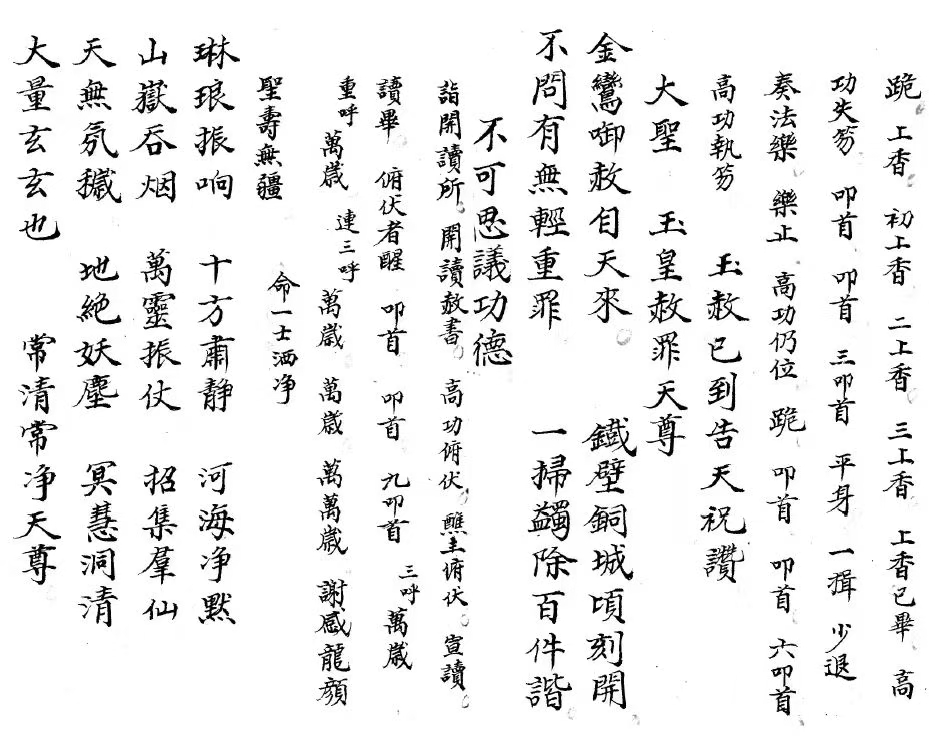 跪 上香 初上香 二上香 三上香 上香已畢 高
功失笏 叩首 叩首 三叩首 平身 一揖 少退
奏法樂 樂止 高功仍位 跪 叩首 叩首 六叩首
高功執笏 玉赦已到告天祝讚
大聖 玉皇赦罪天尊
金鸞啣赦自天來 鐵壁銅城頃刻開
不問有無輕重罪 一掃蠲除百件諧
不可思議功德
詣開讀所。開讀赦書。高功俯伏，醮主俯伏。宣讀。
讀畢 俯伏者醒 叩首 叩首 九叩首 三呼 萬歲
重呼 萬歲 連三呼 萬歲 萬歲 萬萬歲 謝感龍顏
聖壽無疆 命一士洒净
琳琅振响 十方肅静 河海净默
山嶽吞烟 萬靈振仗 招集羣仙
天無氛穢 地絕妖塵 冥慧洞清
大量玄玄也 常清常净天尊